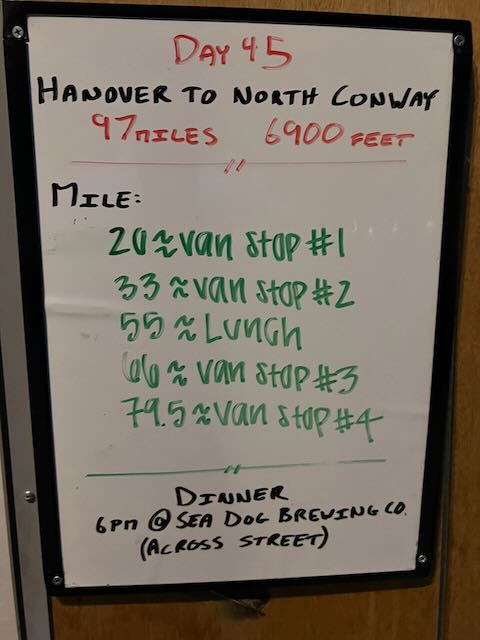 DAY 45
HANOVER TO NORTH CONWAY
97 MILES 6900 FEET
MILE:
20 ≈ van stop #1
33 ≈ van stop #2
55 ≈ Lunch
66 ≈ van stop #3
79.5 ≈ van stop #4
DINNER
6PM @ SEA DOG BREWING CO.
(ACROSS STREET)